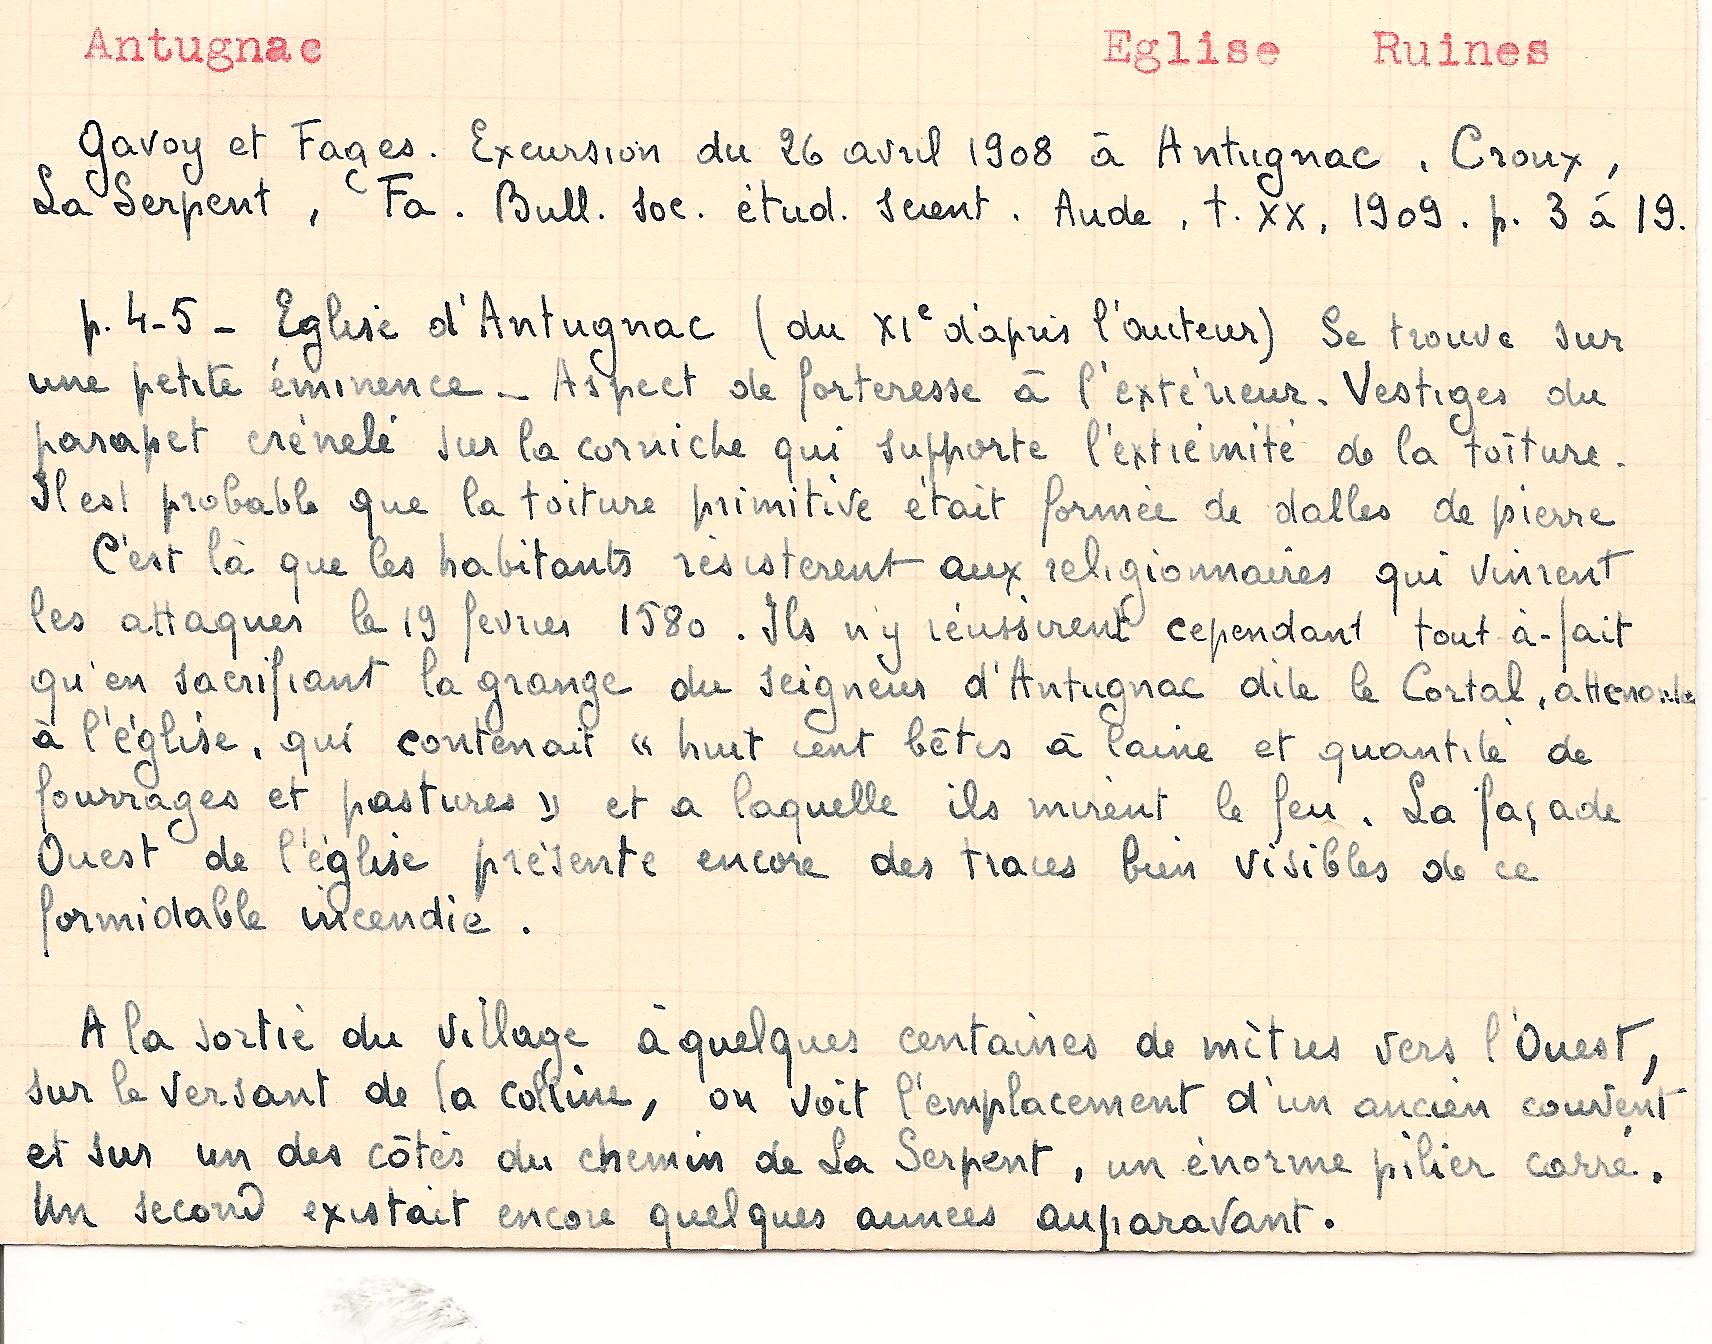 Antugnac Eglise Ruines
Gavoy et Fages. Excursion du 26 avril 1908 à Antugnac, Croux,
La Serpent, Fa. Bull. Soc. étud. scient. Aude, t. XX, 1909. p. 3 à 19.
p. 4-5 - Eglise d'Antugnac (du XIe d'après l'auteur) Se trouve sur
une petite éminence - Aspect de forteresse à l'extérieur. Vestiges du
parapet crénelé sur la corniche qui supporte l'extrémité de la toiture.
Il est probable que la toiture primitive était formée de dalles de pierre
C'est là que les habitants résistèrent aux religionnaires qui vinrent
les attaquer le 19 fevrier 1580. Ils n'y réussirent cependant tout à-fait
qu'en sacrifiant la grange du seigneur d'Antugnac dite le Cortal, attenante
à l'église, qui contenait « huit cent bêtes à laine et quantité de
fourrages et pastures » et a laquelle ils mirent le feu. La façade
Ouest de l'église présente encore des traces bien visibles de ce
formidable incendie.
A la sortie du village à quelques centaines de mètres vers l'Ouest,
sur le versant de la colline, on voit l'emplacement d'un ancien couvent
et sur un des côtés du chemin de La Serpent, un énorme pilier carré.
Un second existait encore quelques années auparavant.